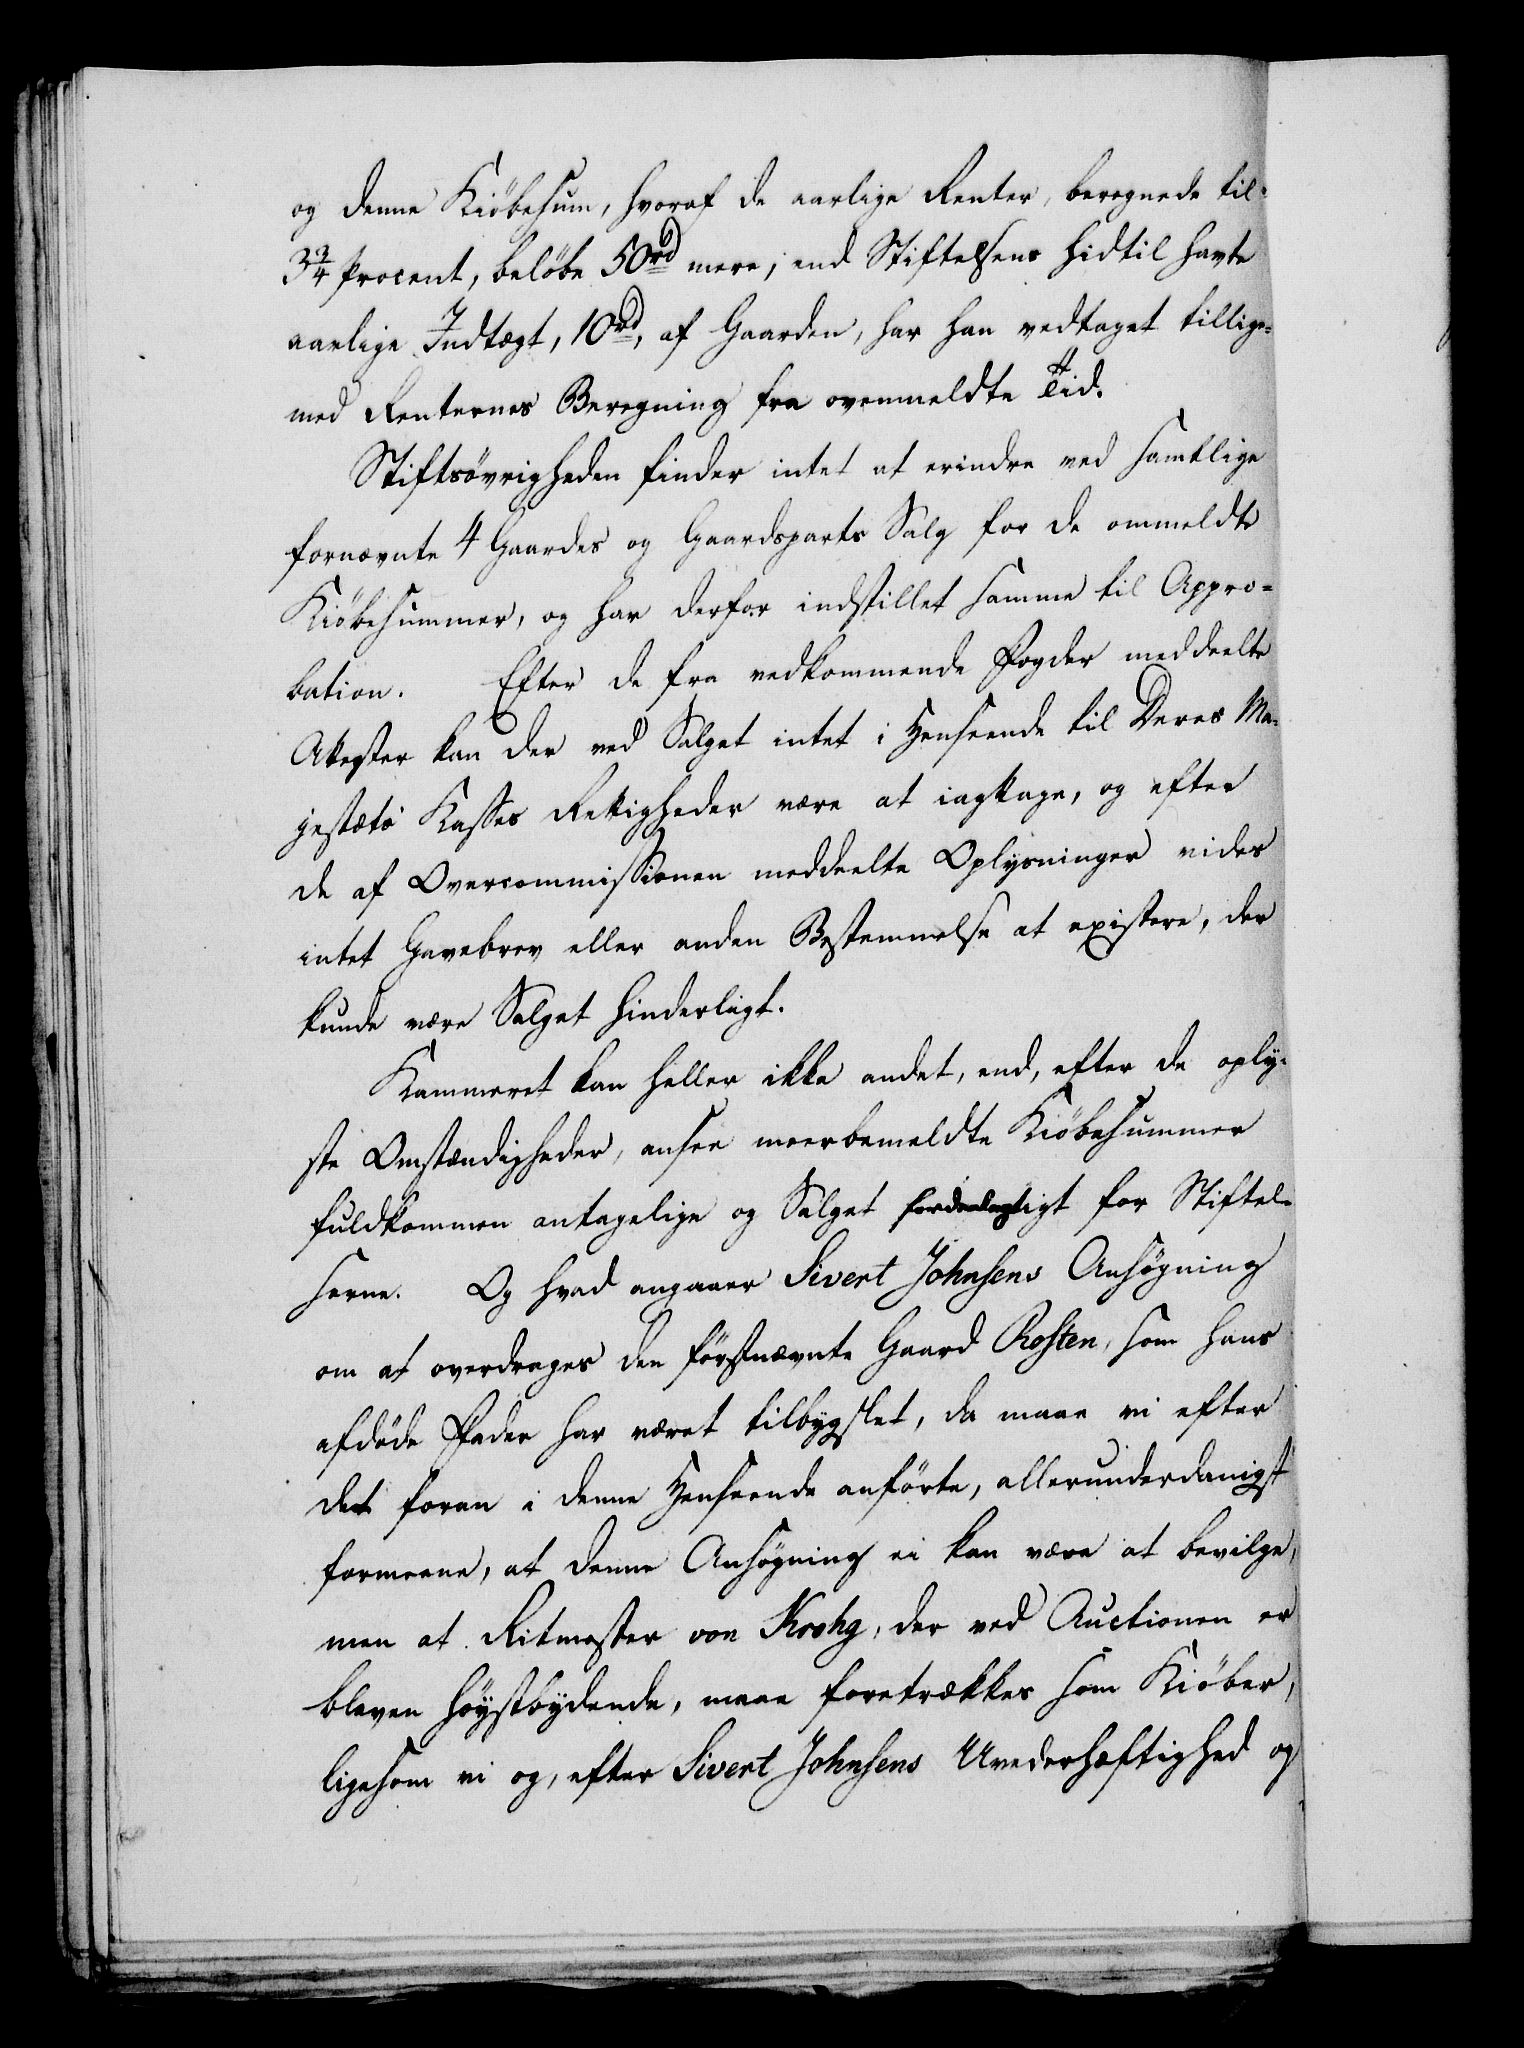 og denne Kiöbesum, hvoraf de aarlige Renter, beregnede til
3¾ Procent, belöbe 50rd mere, end Stiftelsens hidtil havte
aarlige Indtægt, 10rd, af Gaarden, har han vedtaget tillige=
med Renternes Beregning fra ovenmeldte Tid.
Stiftsövrigheden finder intet at erindre ved samtlige
fornævnte 4 Gaardes og Gaardsparts Salg for de ommeldte
Kiöbesummer, og har derfor indstillet samme til Appro=
bation. Efter de fra vedkommende Fogder meddeelte
Atester kan der ved Salget intet i Henseende til Deres Ma=
jestæts Kasses Rettigheder være at iagttage, og efter
de af Overcommissionen meddeelte Oplysninger vides
intet Gavebrev eller anden Bestemmelse at existere, der
kunde være Salget hinderligt.
Kammeret kan heller ikke andet, end, efter de oply=
ste Omstændigheder, ansee meerbemeldte Kiöbesummer
fuldkommen antagelige og Salget fordeelagtigt for Stiftel=
serne. Og hvad angaaer Sivert Johnsens Ansögning
om at overdrages den förstnævnte Gaard Rosten, som hans
afdöde Fader har været tilbygslet, da maae vi efter
det foran i denne Henseende anförte, allerunderdanigst
formeene, at denne Ansögning ei kan være at bevilge,
men at Ritmester von Krohg, der ved Auctionen er
bleven höystbydende, maae foretrækkes som Kiöber,
ligesom vi og, efter Sivert Johnsens Uvederhæftighed og